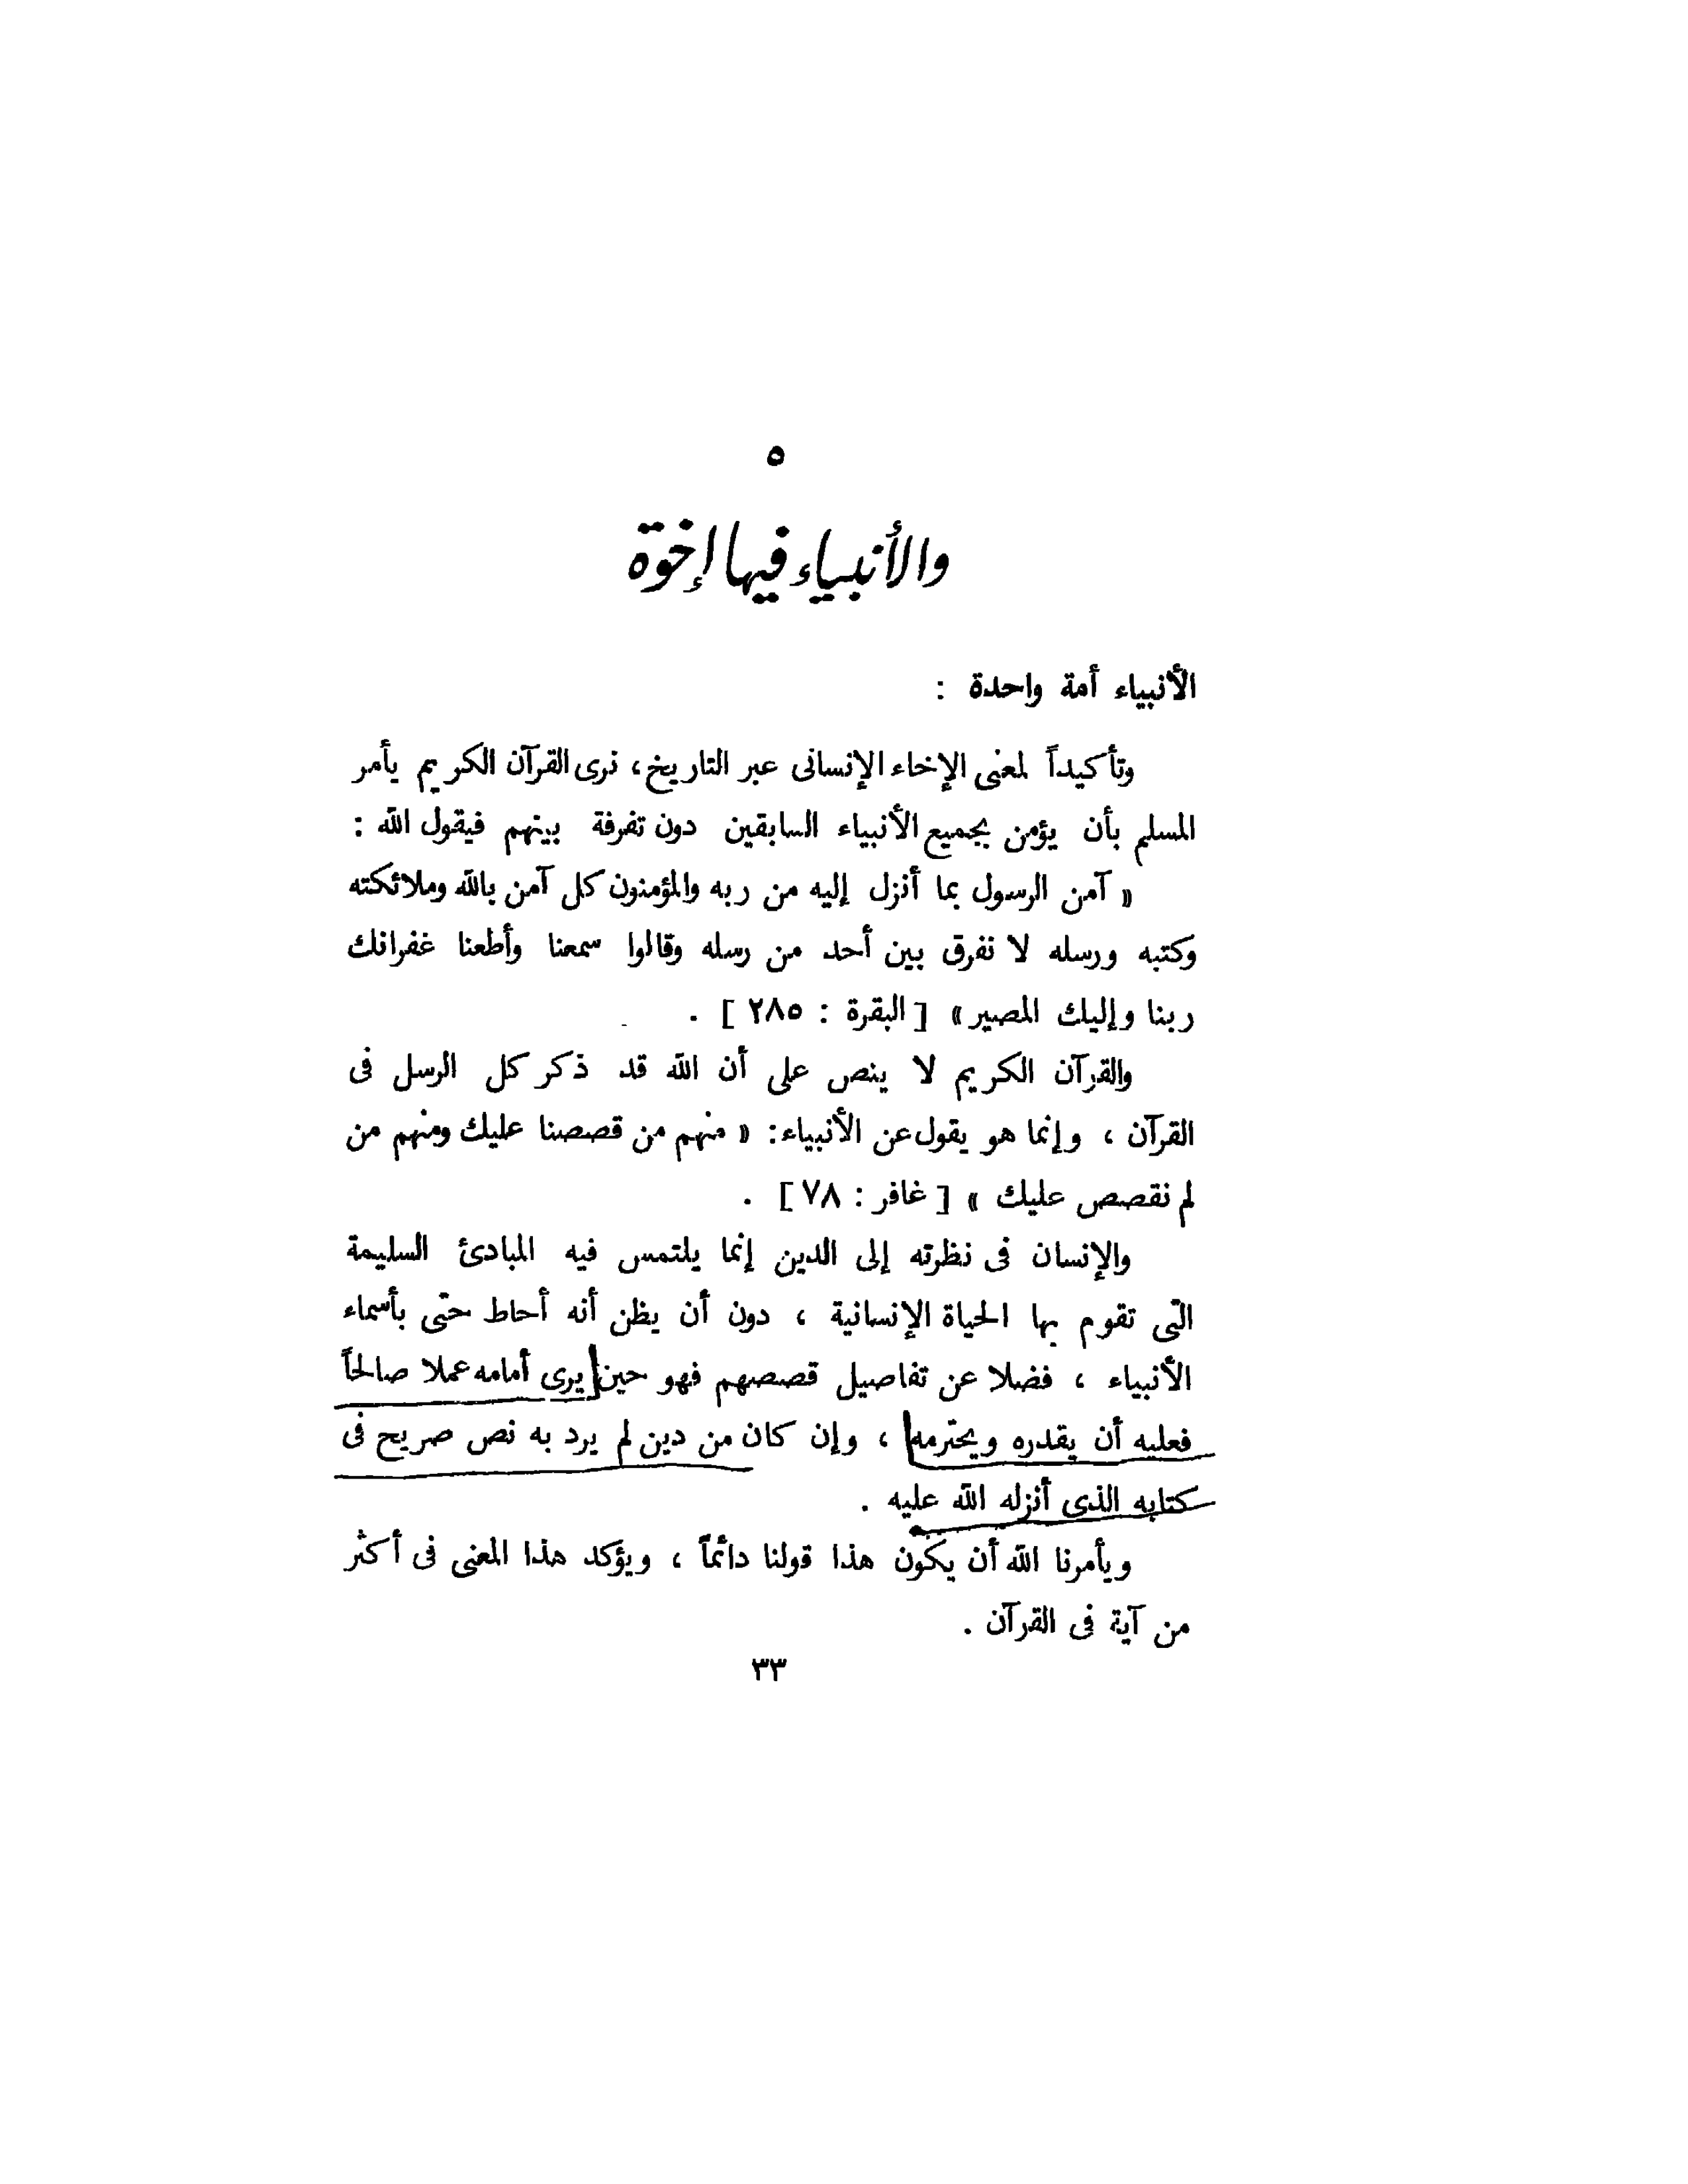 ٥
والأنبياء فيها إخوة
الأنبياء أمة واحدة :
وتأكيداً لمعنى الإخاء الإنسانى عبر التاريخ، نرى القرآن الكريم يأمر
المسلم بأن يؤمن بجميع الأنبياء السابقين دون تفرقة بينهم فيقول الله :
« آمن الرسول بما أنزل إليه من ربه والمؤمنون كل آمن بالله وملائكته
وكتبه ورسله لا نفرق بين أحد من رسله وقالوا سمعنا وأطعنا غفرانك
ربنا وإليك المصير» [ البقرة : ٢٨٥ ] .
والقرآن الكريم لا ينص على أن الله قد ذكر كل الرسل فى
القرآن ، وإنما هو يقول عن الأنبياء: « منهم من قصصنا عليك ومنهم من
لم نقصص عليك » [ غافر : ٧٨ ] .
والإنسان فى نظرته إلى الدين إنما يلتمس فيه المبادئ السليمة
التى تقوم بها الحياة الإنسانية ، دون أن يظن أنه أحاط حتى بأسماء
الأنبياء ، فضلا عن تفاصيل قصصهم فهو حين يرى أمامه عملا صالحاً
فعليه أن يقدره ويحترمه ، وإن كان من دين لم يرد به نص صريح فى
كتابه الذى أنزله الله عليه .
ويأمرنا الله أن يكون هذا قولنا دائماً ، ويؤكد هذا المعنى فى أكثر
من آية فى القرآن .
٣٣